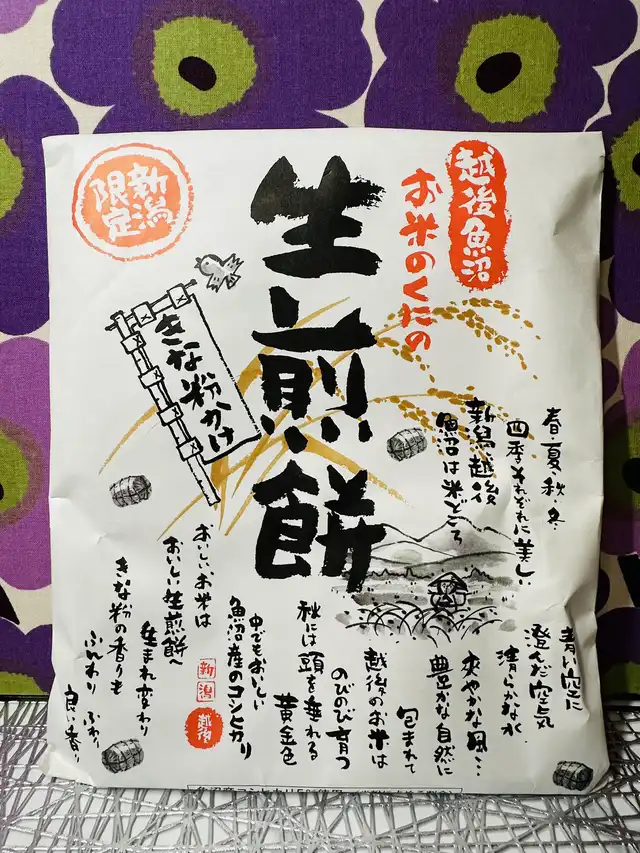 越後魚沼
お米のくたの
生煎餅
新潟
限定
きな粉かけ
春・夏・秋・冬
四季それぞれに美しい
新潟越後
魚沼は米どころ
青い空に
澄んだ空気
清らかな水
爽やかな風…
豊かな自然に
包まれて
越後のお米は
のびのび育つ
秋には頭を垂れる
黄金色
中でもおいしい
魚沼産のコシヒカリ
おいしいお米は
おいしい生煎餅へ
生まれ変わり
きな粉の香りも
ふんわりふわり
良い香り
新潟
越後